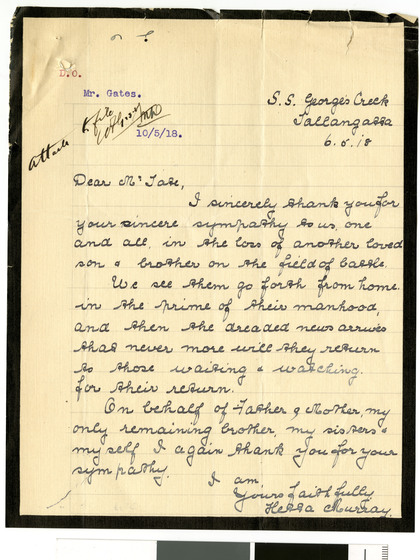 D.O.
Mr. Gates.
attach to file
10/5/18.
S. S. Georges Creek
Tallangatta
6. 5. 18
Dear Mr Tate,
I sincerely thank you for
your sincere sympathy to us, one
and all, in the loss of another loved
son & brother on the field of battle.
We see them go forth from home
in the prime of their manhood,
and then the dreaded news arrives
that never more will they return
to those waiting & watching
for their return.
On behalf of Father & Mother, my
only remaining brother, my sisters &
myself I again thank you for your
sympathy.
I am,
Yours faithfully
Hetta Murray.